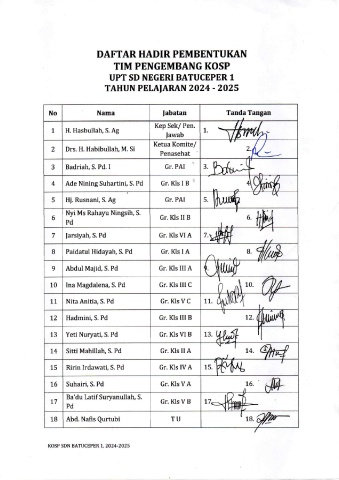 DAFTAR HADIR PEMBENTUKAN
TIM PENGEMBANG KOSP
UPT SD NEGERI BATUCEPER 1
TAHUN PELAJARAN 2024 - 2025
No Nama Jabatan Tanda Tangan
1 H. Hasbullah, S. Ag Kep Sek/ Pen. Jawab 1.
2 Drs. H. Habibullah, M. Si Ketua Komite/ Penasehat 2.
3 Badriah, S. Pd. I Gr. PAI 3.
4 Ade Nining Suhartini, S. Pd Gr. Kls I B 4.
5 Hj. Rusnani, S. Ag Gr. PAI 5.
6 Nyi Ms Rahayu Ningsih, S. Pd Gr. Kls II B 6.
7 Jarsiyah, S. Pd Gr. Kls VI A 7.
8 Paidatul Hidayah, S. Pd Gr. Kls I A 8.
9 Abdul Majid, S. Pd Gr. Kls III A 9.
10 Ina Magdalena, S. Pd Gr. Kls III C 10.
11 Nita Anitia, S. Pd Gr. Kls V C 11.
12 Hadmini, S. Pd Gr. Kls III B 12.
13 Yeti Nuryati, S. Pd Gr. Kls VI B 13.
14 Sitti Mahillah, S. Pd Gr. Kls II A 14.
15 Ririn Irdawati, S. Pd Gr. Kls IV A 15.
16 Suhairi, S. Pd Gr. Kls V A 16.
17 Ba'du Latif Suryanullah, S. Pd Gr. Kls V B 17.
18 Abd. Nafis Qurtubi T U 18.
KOSP SDN BATUCEPER 1. 2024-2025